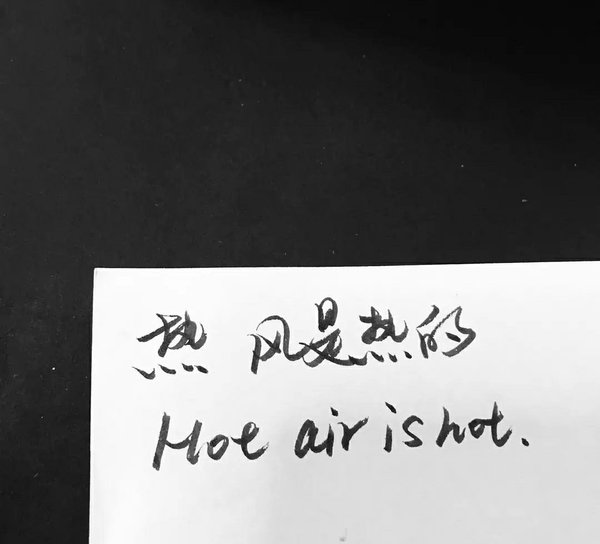 热 风是热的
Hot air is hot.